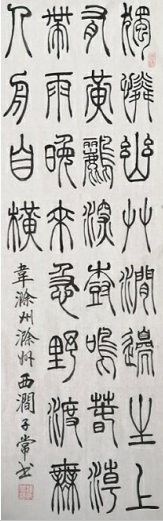 獨憐幽艸澗邊生上
有黃鸝深樹鳴春潮
帶雨晚來急野渡無
人舟自橫
韋滁州滁州西澗子常书